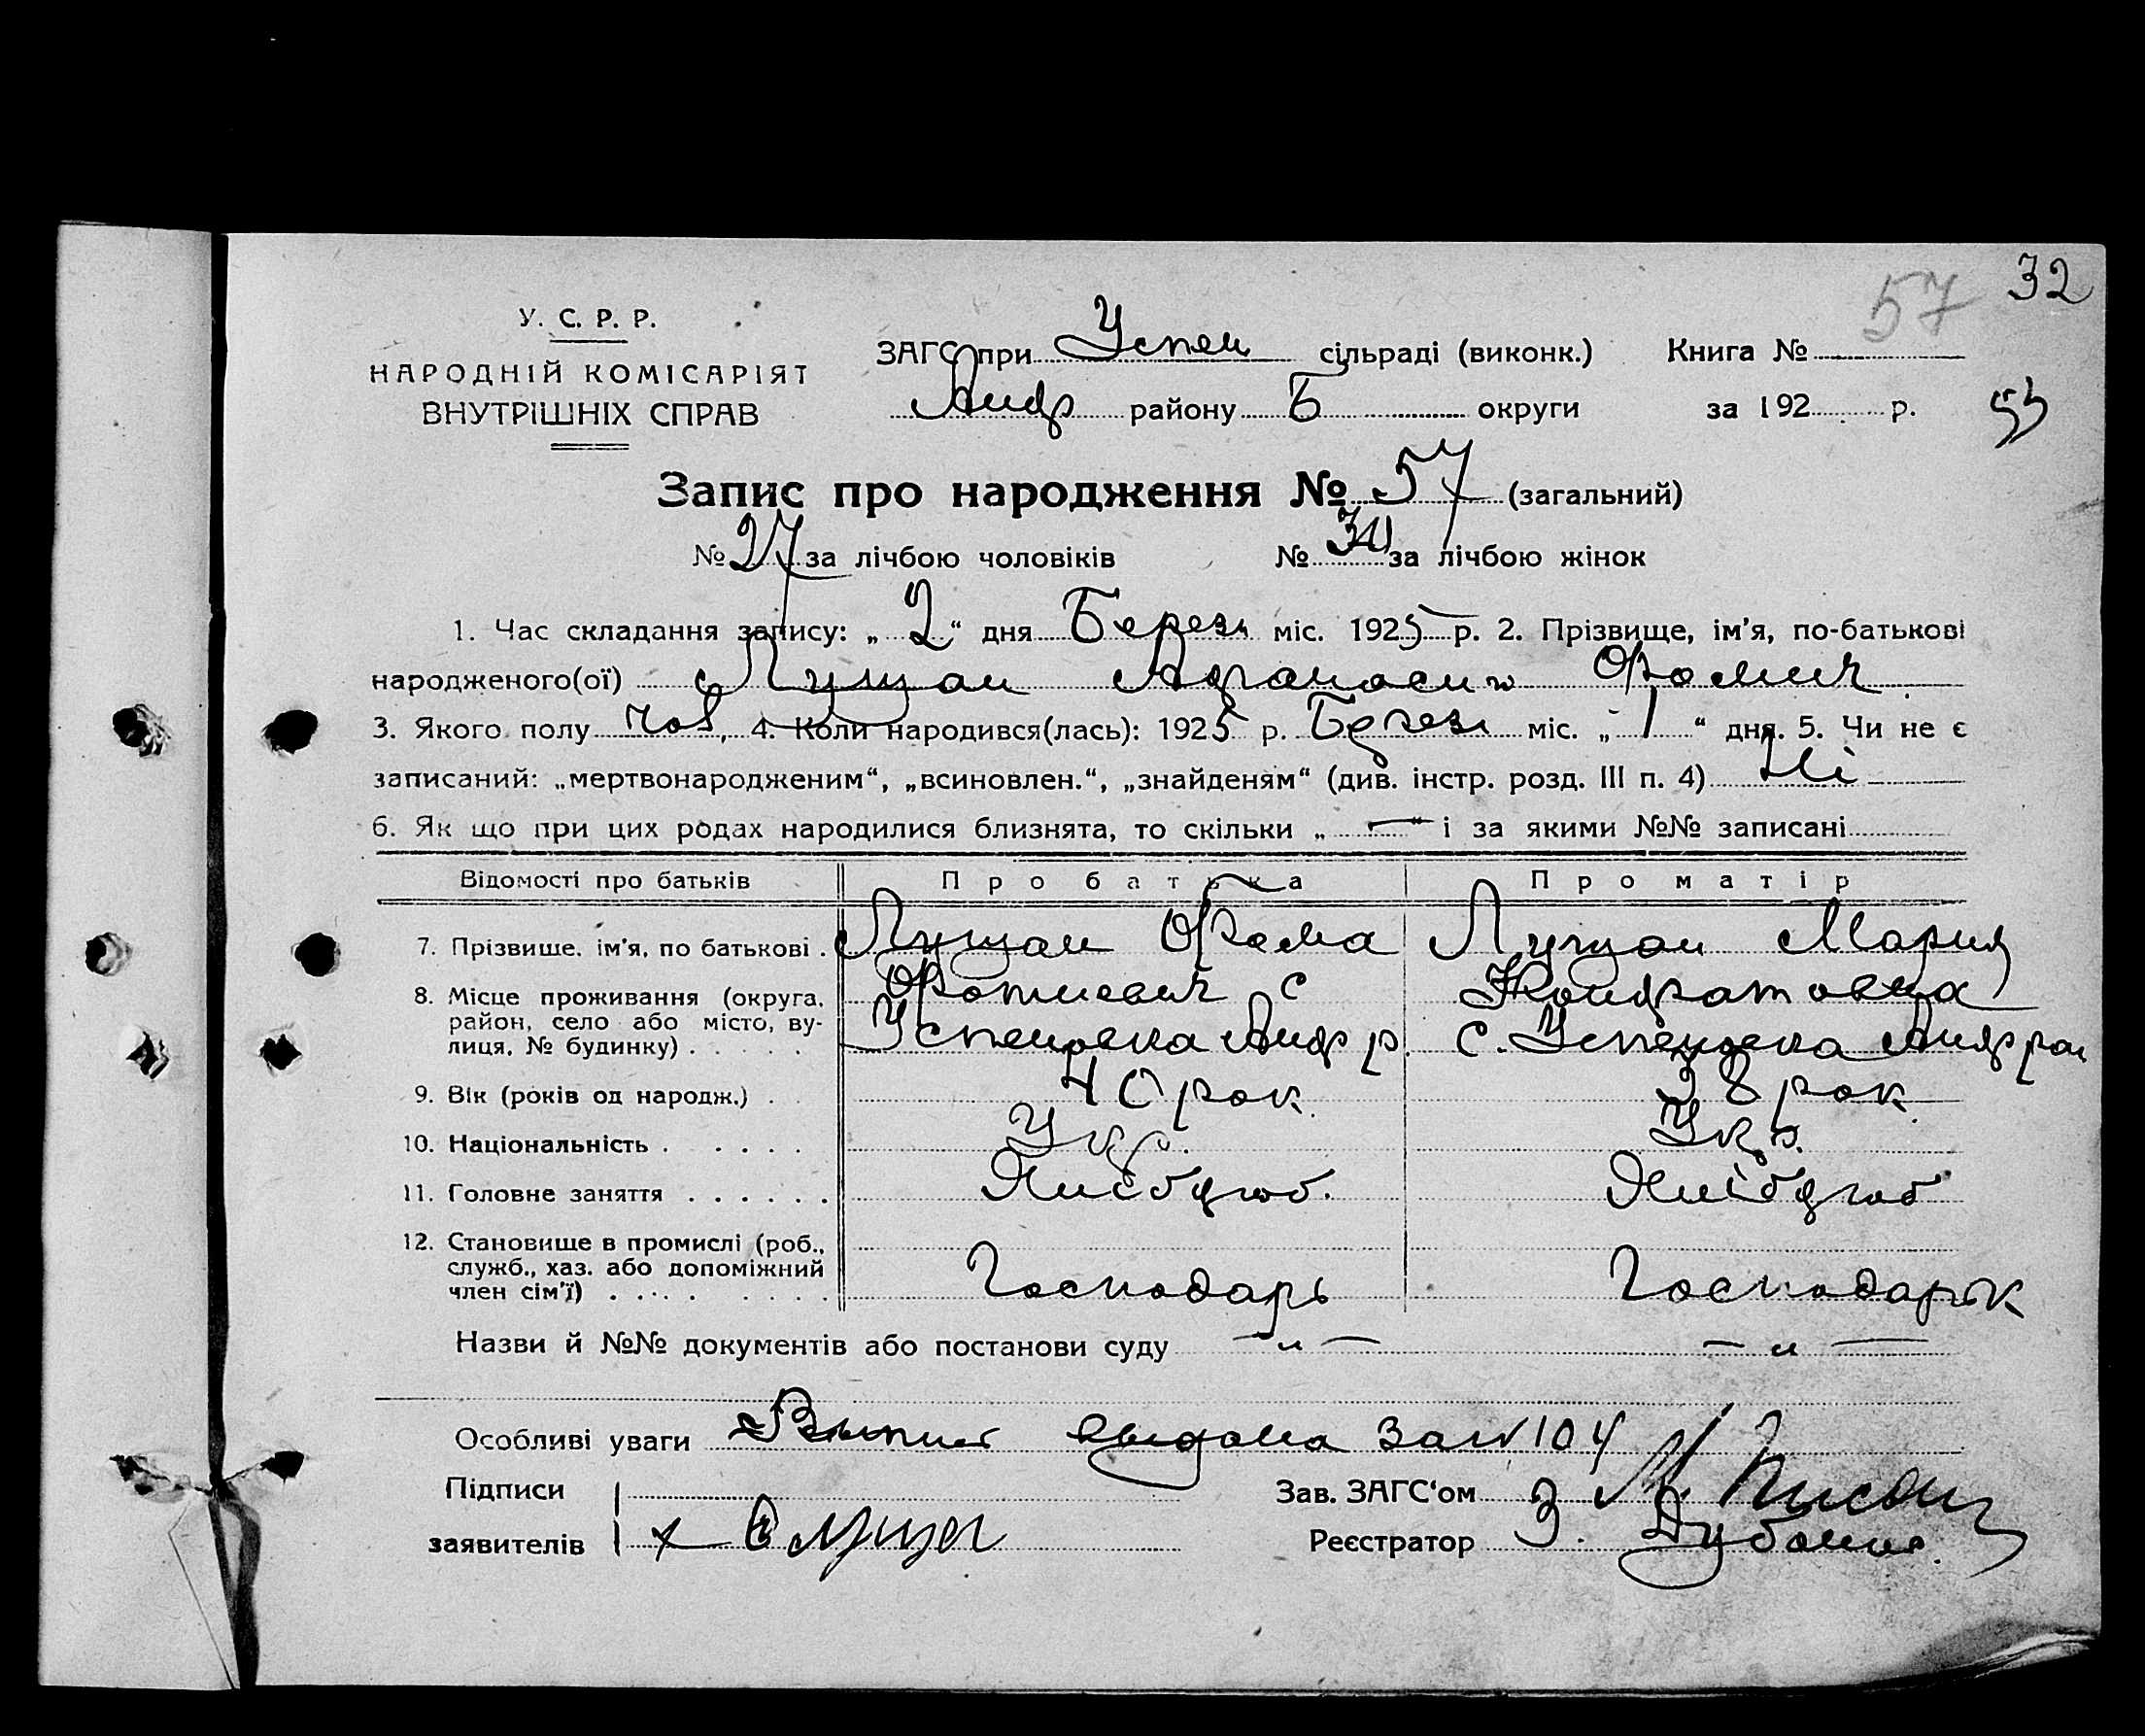 32
57
У. С. Р. Р.
НАРОДНІЙ КОМІСАРІЯТ
ВНУТРІШНІХ СПРАВ
ЗАГС при Успен сільраді (виконк.) Книга №
Андр району Б округи за 192 р.
53
Запис про народження № 57 (загальний)
№ 27 за лічбою чоловіків № 30 за лічбою жінок
1. Час складання запису: „ 2 “ дня Березн міс. 1925 р. 2. Прізвище, ім'я, по-батькові
народженого(ої) Лущан Афанасий Фомич
3. Якого полу чов, 4. Коли народився(лась): 1925 р. Березн міс. „ 1 “ дня. 5. Чи не є
записаний: „мертвонародженим“, „всиновлен.“, „знайденям“ (див. інстр. розд. III п. 4) Ні
6. Як що при цих родах народилися близнята, то скільки „ — “ і за якими №№ записані
Відомості про батьків Про батька Про матір
7. Прізвище, ім'я, по батькові . Лущан Фома Лущан Мария
8. Місце проживання (округа, Фотиевич с Кондратовна
район, село або місто, ву- Успеновка Андр р. с. Успеновка Андр рай
лиця, № будинку) . . . . .
9. Вік (років од народж.) . 40 рок. 38 рок.
10. Національність . . . . . Укр. Укр.
11. Головне заняття . . . . . . Хлібороб. Хлібороб
12. Становище в промислі (роб.,
служб., хаз. або допоміжний
член сім'ї) . . . . . . . . Господарь Господарьк
Назви й №№ документів або постанови суду — „ — — „ —
Особливі уваги за № 104
Підписи Зав. ЗАГС‘ом
заявителів Реєстратор З.